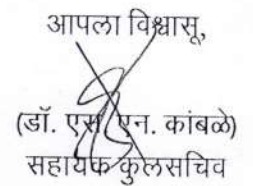 आपला विश्वासू,
(डॉ. एस. एन. कांबळे)
सहायक कुलसचिव